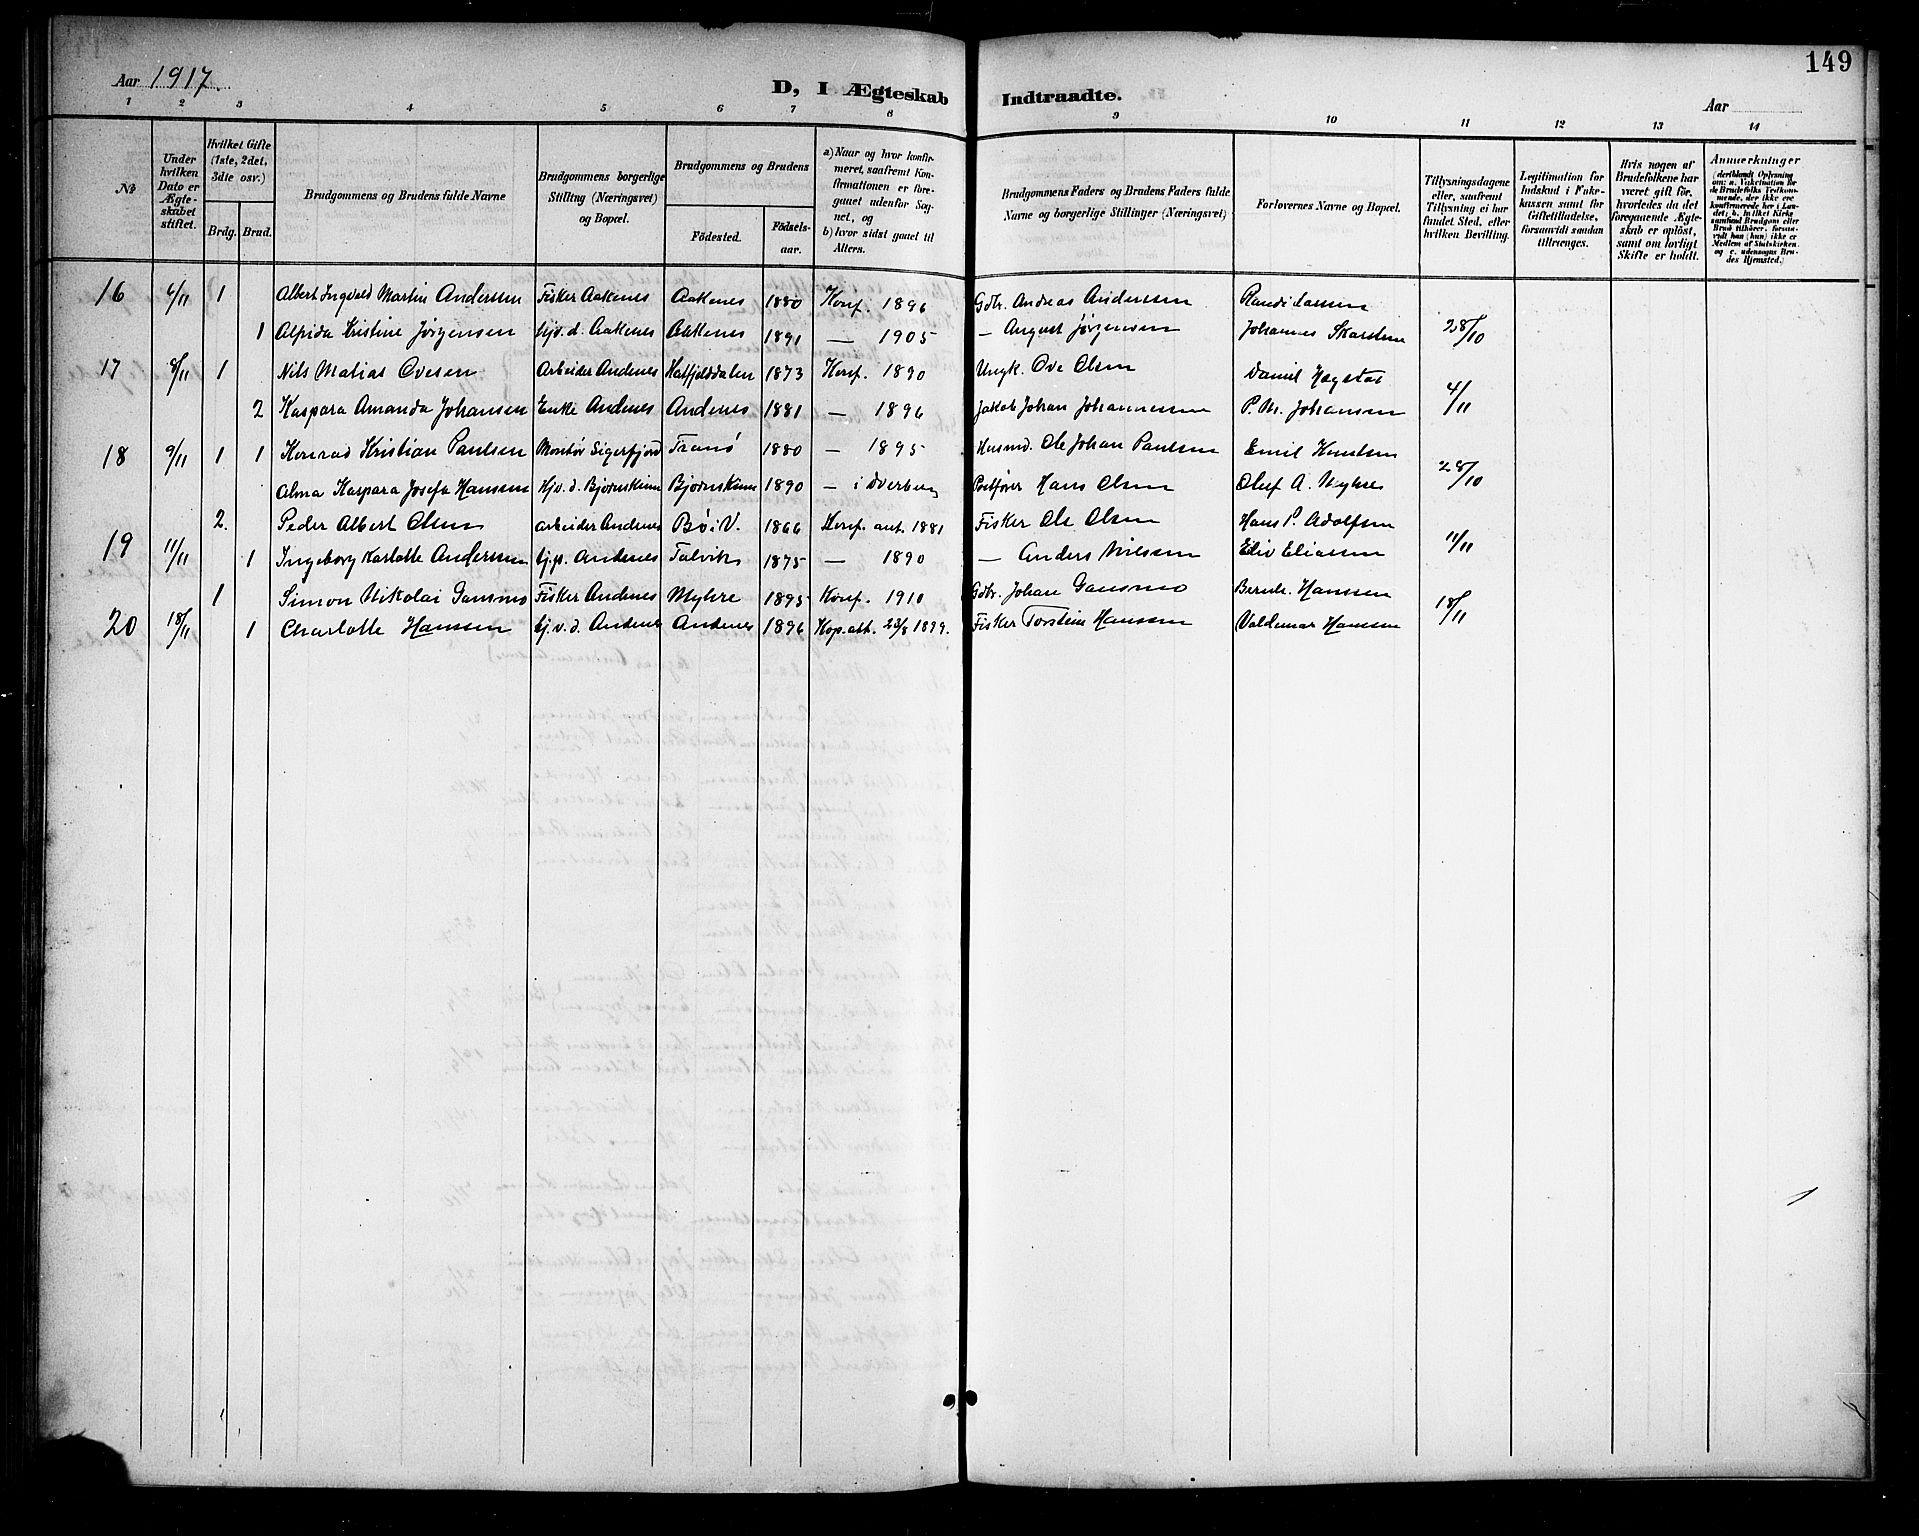 149
Aar 1917.
D, I Ægteskab Indtraadte.
Aar
1 2 3 4 5 6 7 8 9 10 11 12 13 14
No
Under hvilken Dato er Ægteskabet stiftet.
Hvilket Gifte (1ste, 2det, 3die osv.)
Brdg. Brud.
Brudgommens og Brudens fulde Navne
Brudgommens borgerlige Stilling (Næringsvei) og Bopæl.
Brudgommens og Brudens
Födested. Födselsaar.
a) Naar og hvor konfirmeret, saafremt Konfirmationen er foregaaet udenfor Sognet, og
b) hvor sidst gaaet til Alters.
Brudgommens Faders og Brudens Faders fulde Navne og borgerlige Stillinger (Næringsvei)
Forlovernes Navne og Bopæl.
Tillysningsdagene eller, saafremt Tillysning ei har fundet Sted, efter hvilken Bevilling.
Legitimation for Indskud i Enkekassen samt for Giftetilladelse, forsaavidt saadan tiltrænges.
Hvis nogen af Brudefolkene har været gift för, hvorledes da det foregaaende Ægteskab er oplöst, samt om lovligt Skifte er holdt.
Anmerkninger
16 6/11 1 Albert Ingvald Martin Anderssen Fisker Aakenes Aakenes 1880 Konf. 1896 Gdbr. Andreas Anderssen Randi Larsen
1 Alfida Kristine Jørgensen hjv. d. Aakenes Aakenes 1891 — 1905 — August Jørgensen Johannes Skarstein 28/10
17 8/11 1 Nils Matias Ovesen Arbeider Andenes Hatfjelddalen 1873 Konf. 1890 Ungk. Ove Olsen Daniel Høgstad
2 Kaspara Amanda Johansen Enke Andenes Andenes 1881 — 1896 Jakob Johan Johannessen P. M. Johansen 4/11
18 9/11 1 1 Konrad Kristian Paulsen Montør Sigerfjord Tranø 1880 — 1895 Husmd. Ole Johan Paulsen Emil Knutsen
Alma Kaspara Josefa Hanssen Hjv. d. Bjørnskinn Bjørnskinn 1890 — i Dverberg Postfører Hans Olsen Oluf A. Myhre 28/10
2. Peder Albert Olsen arbeider Andenes Bø i V. 1866 Konf. ant. 1881 Fisker Ole Olsen Hans P. Adolfsen
19 11/11 1 Ingeborg Karlotte Anderssen Andenes Talvik 1875 — 1890 — Anders Nilsen Eliv Eliassen 11/11
1 Simon Nikolai Gansmo Fisker Andenes Myhre 1895 Konf. 1910 Gdbr. Johan Gansmo Bernh. Hanssen
20 18/11 1 Charlotte Hanssen hjv. d. Andenes Andenes 1896 Kop. att. 23/8 1899. Fisker Torstein Hanssen Valdemar Hanssen 18/11